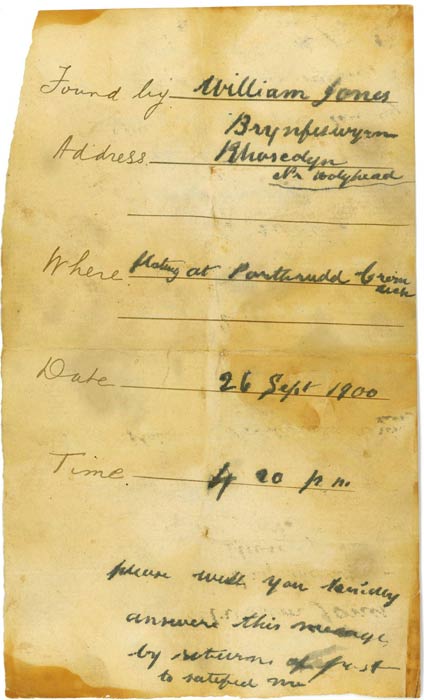 Found by William Jones
Brynfeswyrn
Address Rhosedyn
Nr Holyhead
Where floting at Porthrudd
Date 26 Sept 1900
Time 4 20 p.m.
please will you kindley
answere this message
by return of post
to satefied me